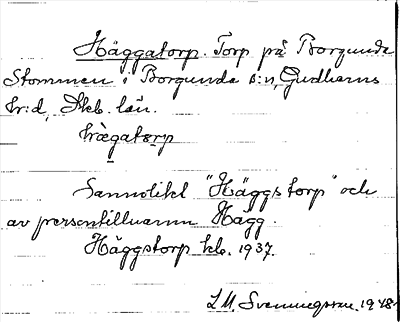 Häggatorp. Torp på Borgunda
Stommen i Borgunda s:n, Gudhems
hr:d, Skb. län.
hægatorp
Sannolikt "Häggstorp" och
av personbillnamn Hägg.
Häggstorp kb. 1937.
L. M. Svenningsson. 1948.